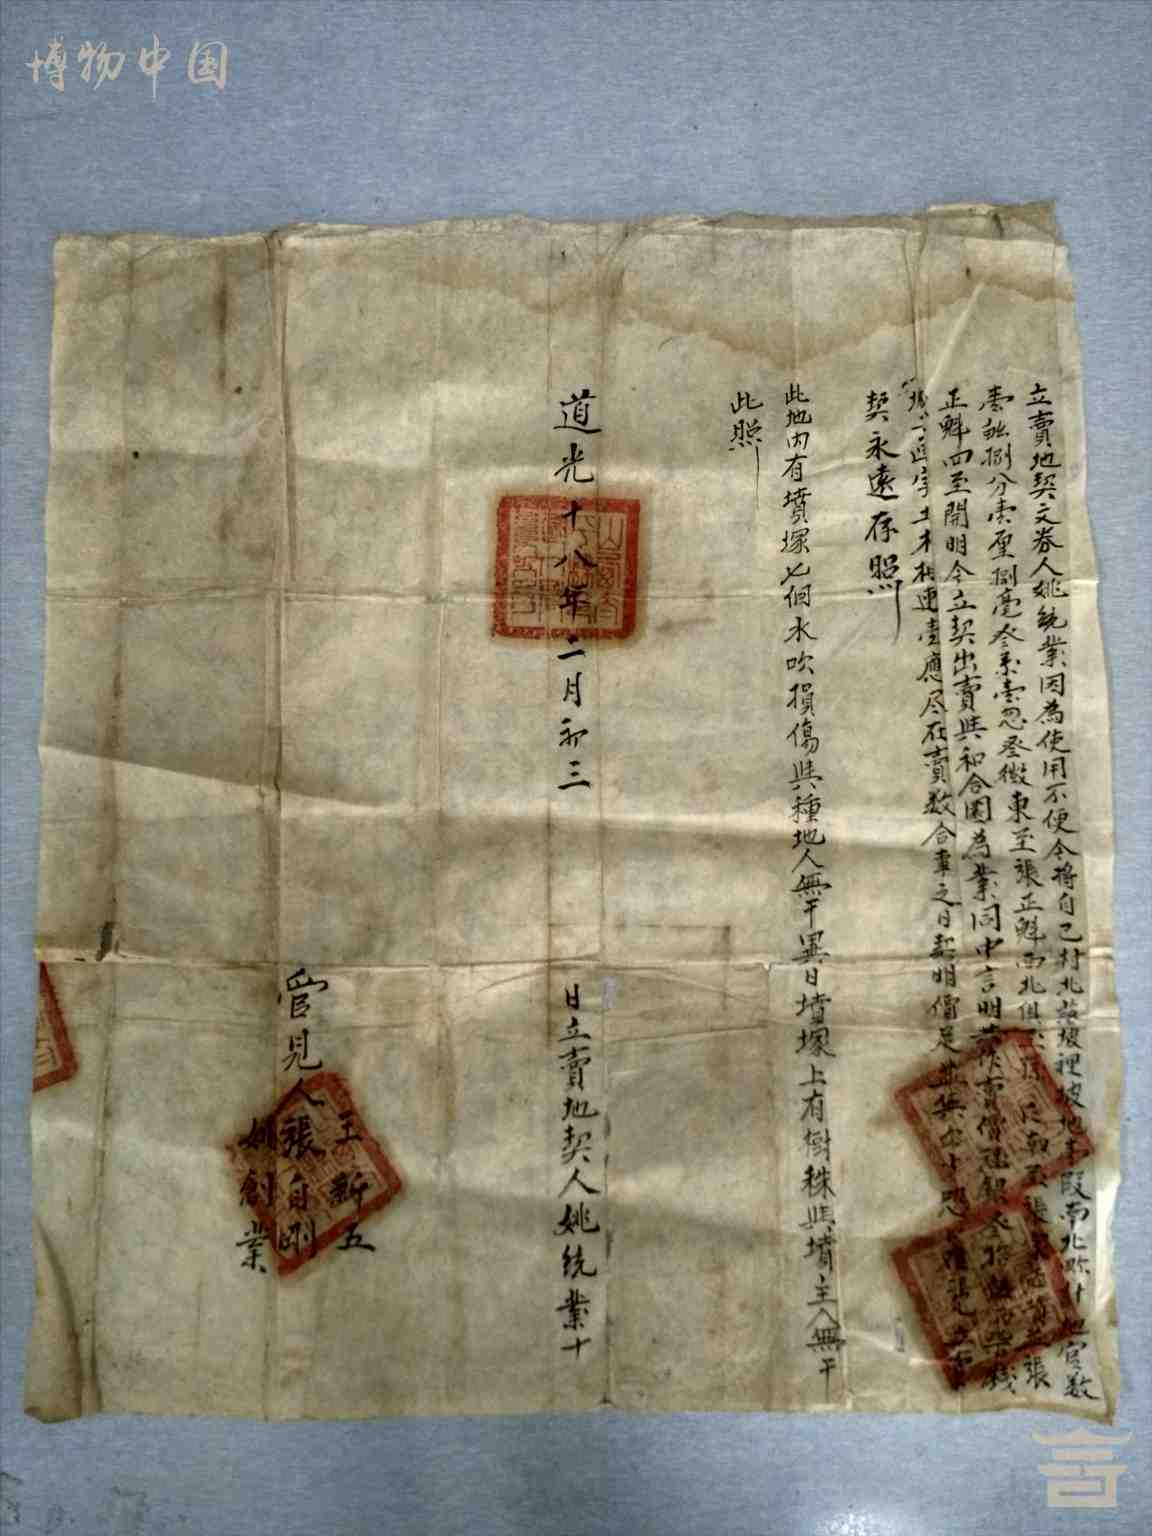 博物中国
立賣地契文券人姚統業因為使用不便今將自己村北坡裡坡地壹段南北畛計地官数
壹畝捌分壹厘捌毫叁系壹忽叁微東至張正魁西北俱至南至張張
正魁四至開明今立契出賣與和合園為業同中言明共作賣價紋銀叁拾錢
土木相連壹應尽在賣数合車之日契明價足並無
契永遠存照
此地内有墳塚七個水吹損傷與種地人無干異日墳塚上有樹株與墳主人無干
此照
道光十八年二月初三
日立賣地契人姚統業十
官見人
王新五
張自剛
姚創業